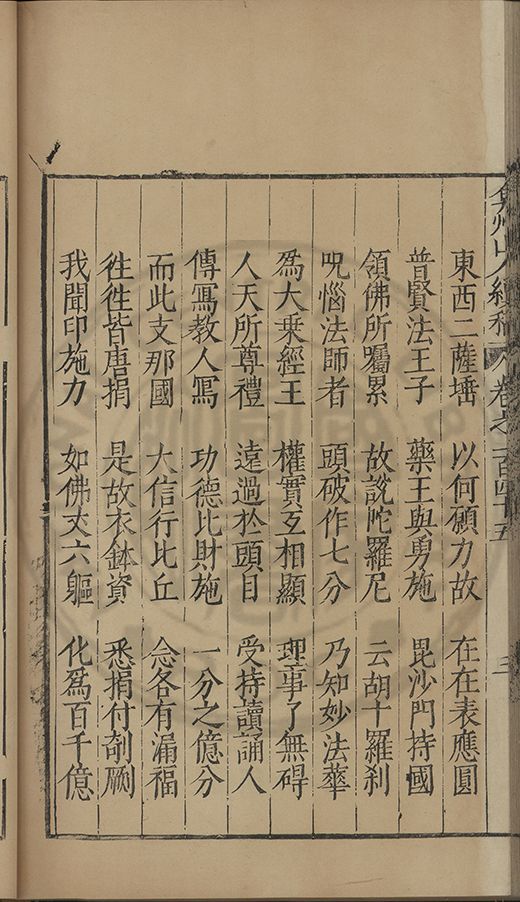 弇州山人續稿 卷之一百四十五 三
東西二薩埵 以何願力故 在在表應圓
普賢法王子 藥王與勇施 毘沙門持國
領佛所囑累 故說陀羅尼 云胡十羅刹
呪惱法師者 頭破作七分 乃知妙法華
為大乗經王 權實互相顯 理事了無碍
人天所尊禮 遠過於頭目 受持讀誦人
傳寫教人寫 功德比財施 一分之億分
而此支那國 大信行比丘 念各有漏福
往往皆唐捐 是故衣鉢資 悉捐付剞劂
我聞印施力 如佛丈六軀 化為百千億